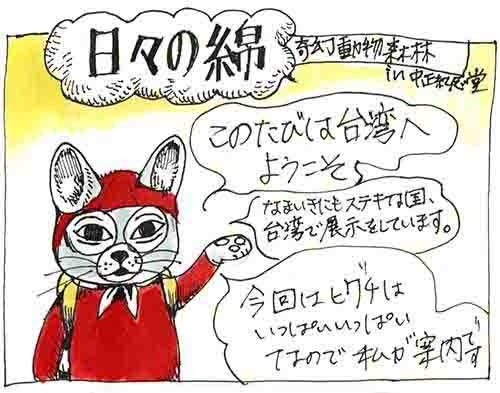 日々の綿
奇幻動物森林
in 中正紀念堂
このたびは台湾へ
ようこそ
なまいきにもステキな国、
台湾で展示をしています。
今回はヒグチは
いっぱいいっぱい
てなので私が案内です